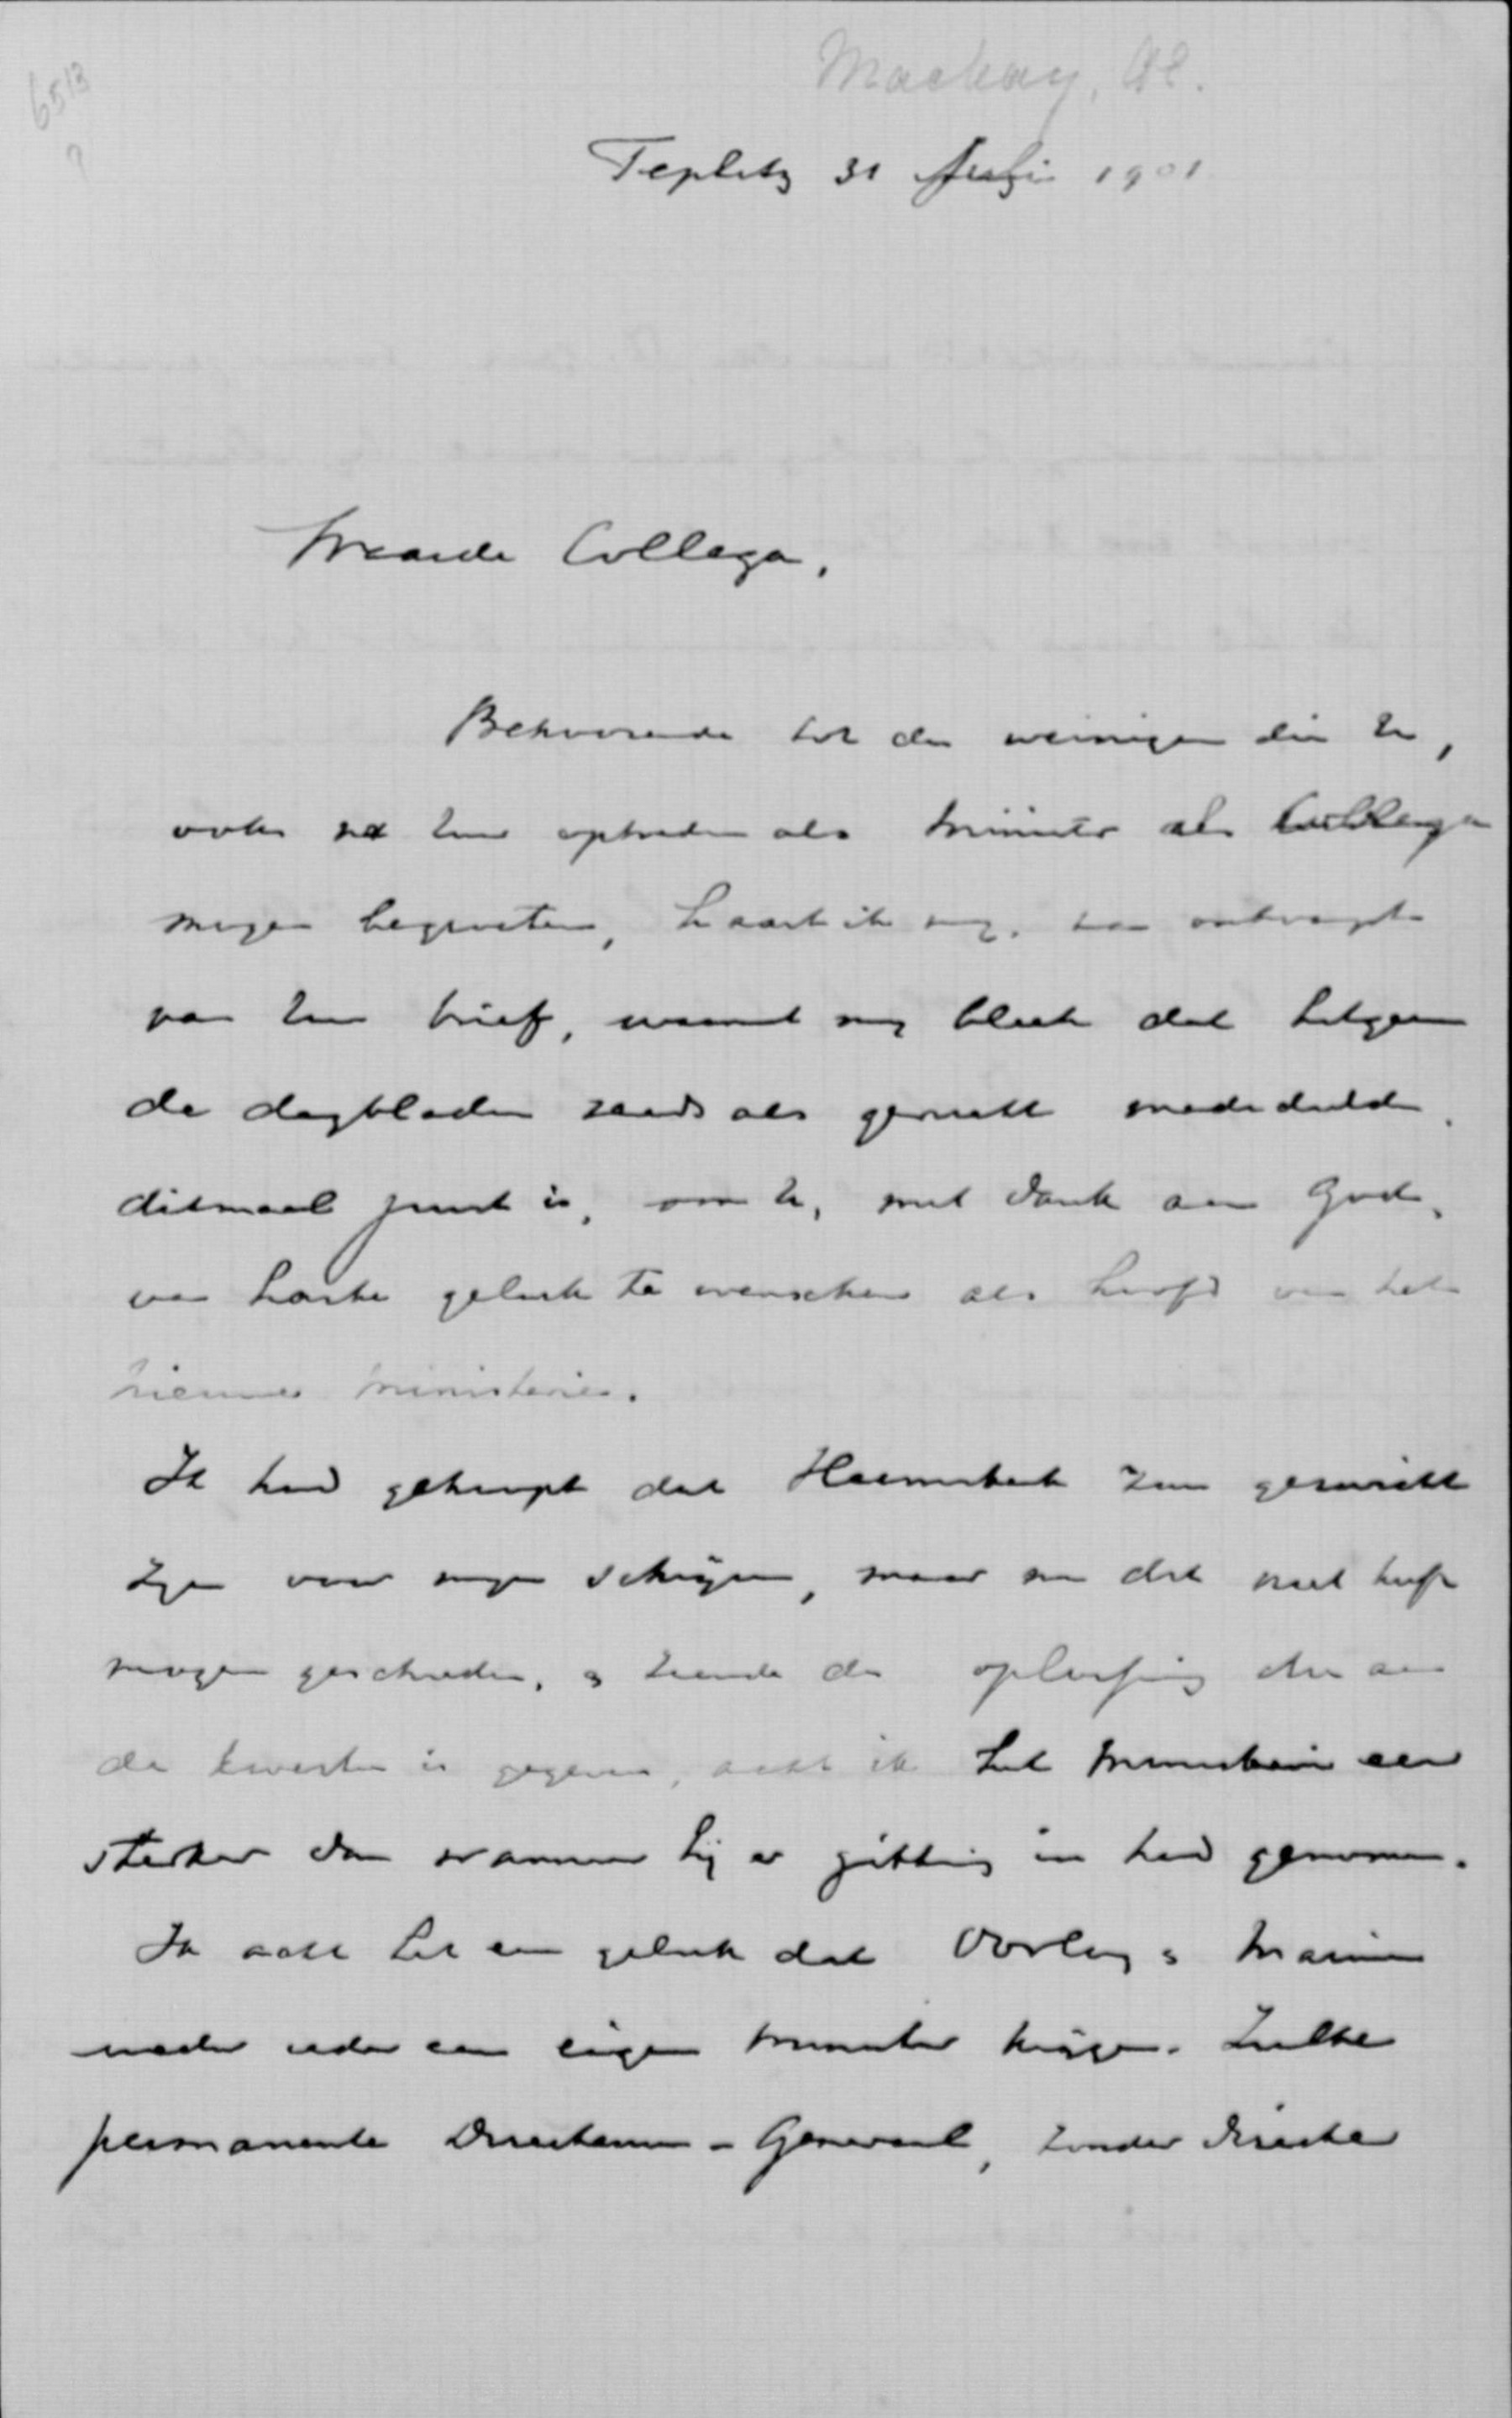 6513
?
Mackay, Æ.
Teplitz 31 Juli 1901
Waarde Collega,
Behoorende tot de weinigen die U,
ook na Uw optreden als Minister als Collega
mogen begroeten, haast ik mij, na ontvangst
van Uw brief, waaruit mij bleek dat hetgeen
de dagbladen reeds als gerucht mededeelden
ditmaal juist is, om U, met dank aan God,
van harte geluk te wenschen als hoofd van het
nieuwe ministerie.
Ik had gehoopt dat Heemskerk zou
voor mogen, maar nu dit niet heeft
mogen geschieden, & de oplossing die aan
de kwestie is gegeven, acht ik het Ministerie
sterker dan wanneer hij er zitting in had genomen.
Ik acht het een geluk dat Oorlog & Marine
weder ieder een eigen Minister krijgen. Zulke
permanente Directeuren-Generaal, zonder directe